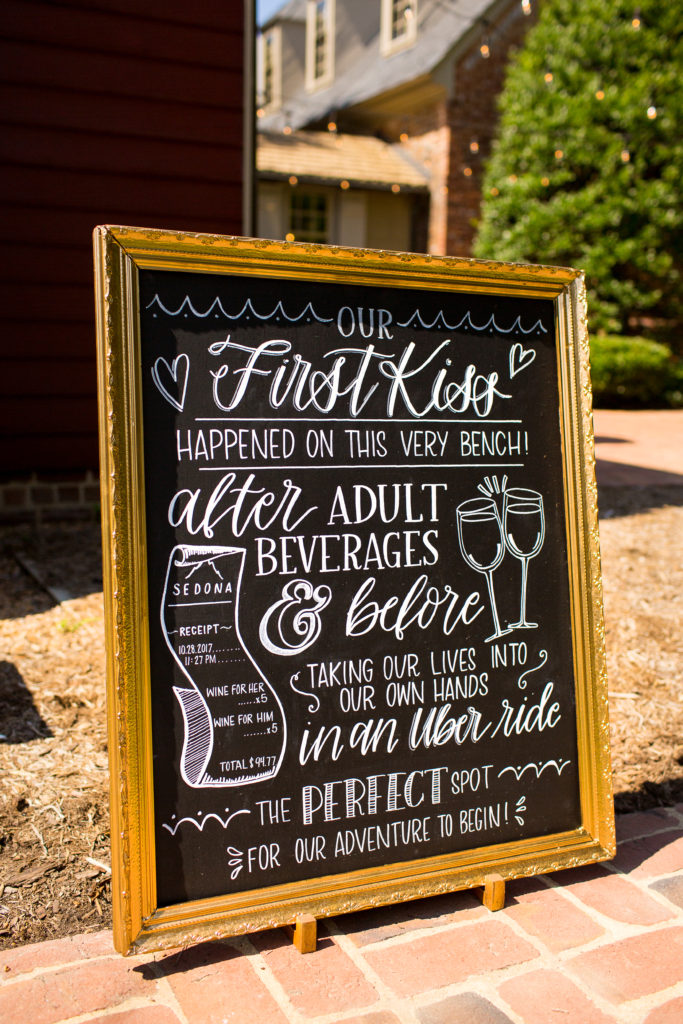 OUR
First Kiss
HAPPENED ON THIS VERY BENCH!
after ADULT
BEVERAGES
& before
TAKING OUR LIVES INTO
OUR OWN HANDS
in an Uber ride
THE PERFECT SPOT
FOR OUR ADVENTURE TO BEGIN!
SEDONA
~RECEIPT~
10.28.2017........
11:27 PM........
WINE FOR HER
......x5
WINE FOR HIM
........x5
TOTAL $94.77